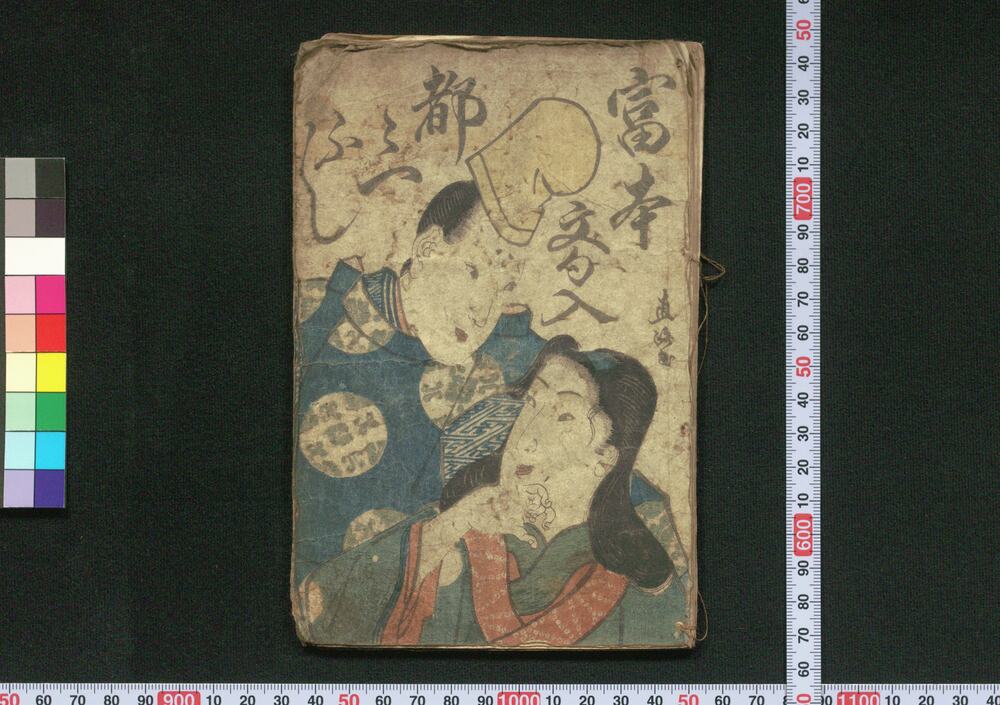 富本
文句入
都々一
ふし
50 40 30 20 10 700 90 80 70 60 50 40 30 20 10 600 90 80 70 60
50 60 70 80 90 900 10 20 30 40 50 60 70 80 90 1000 10 20 30 40 50 60 70 80 90 1100 10 20 30